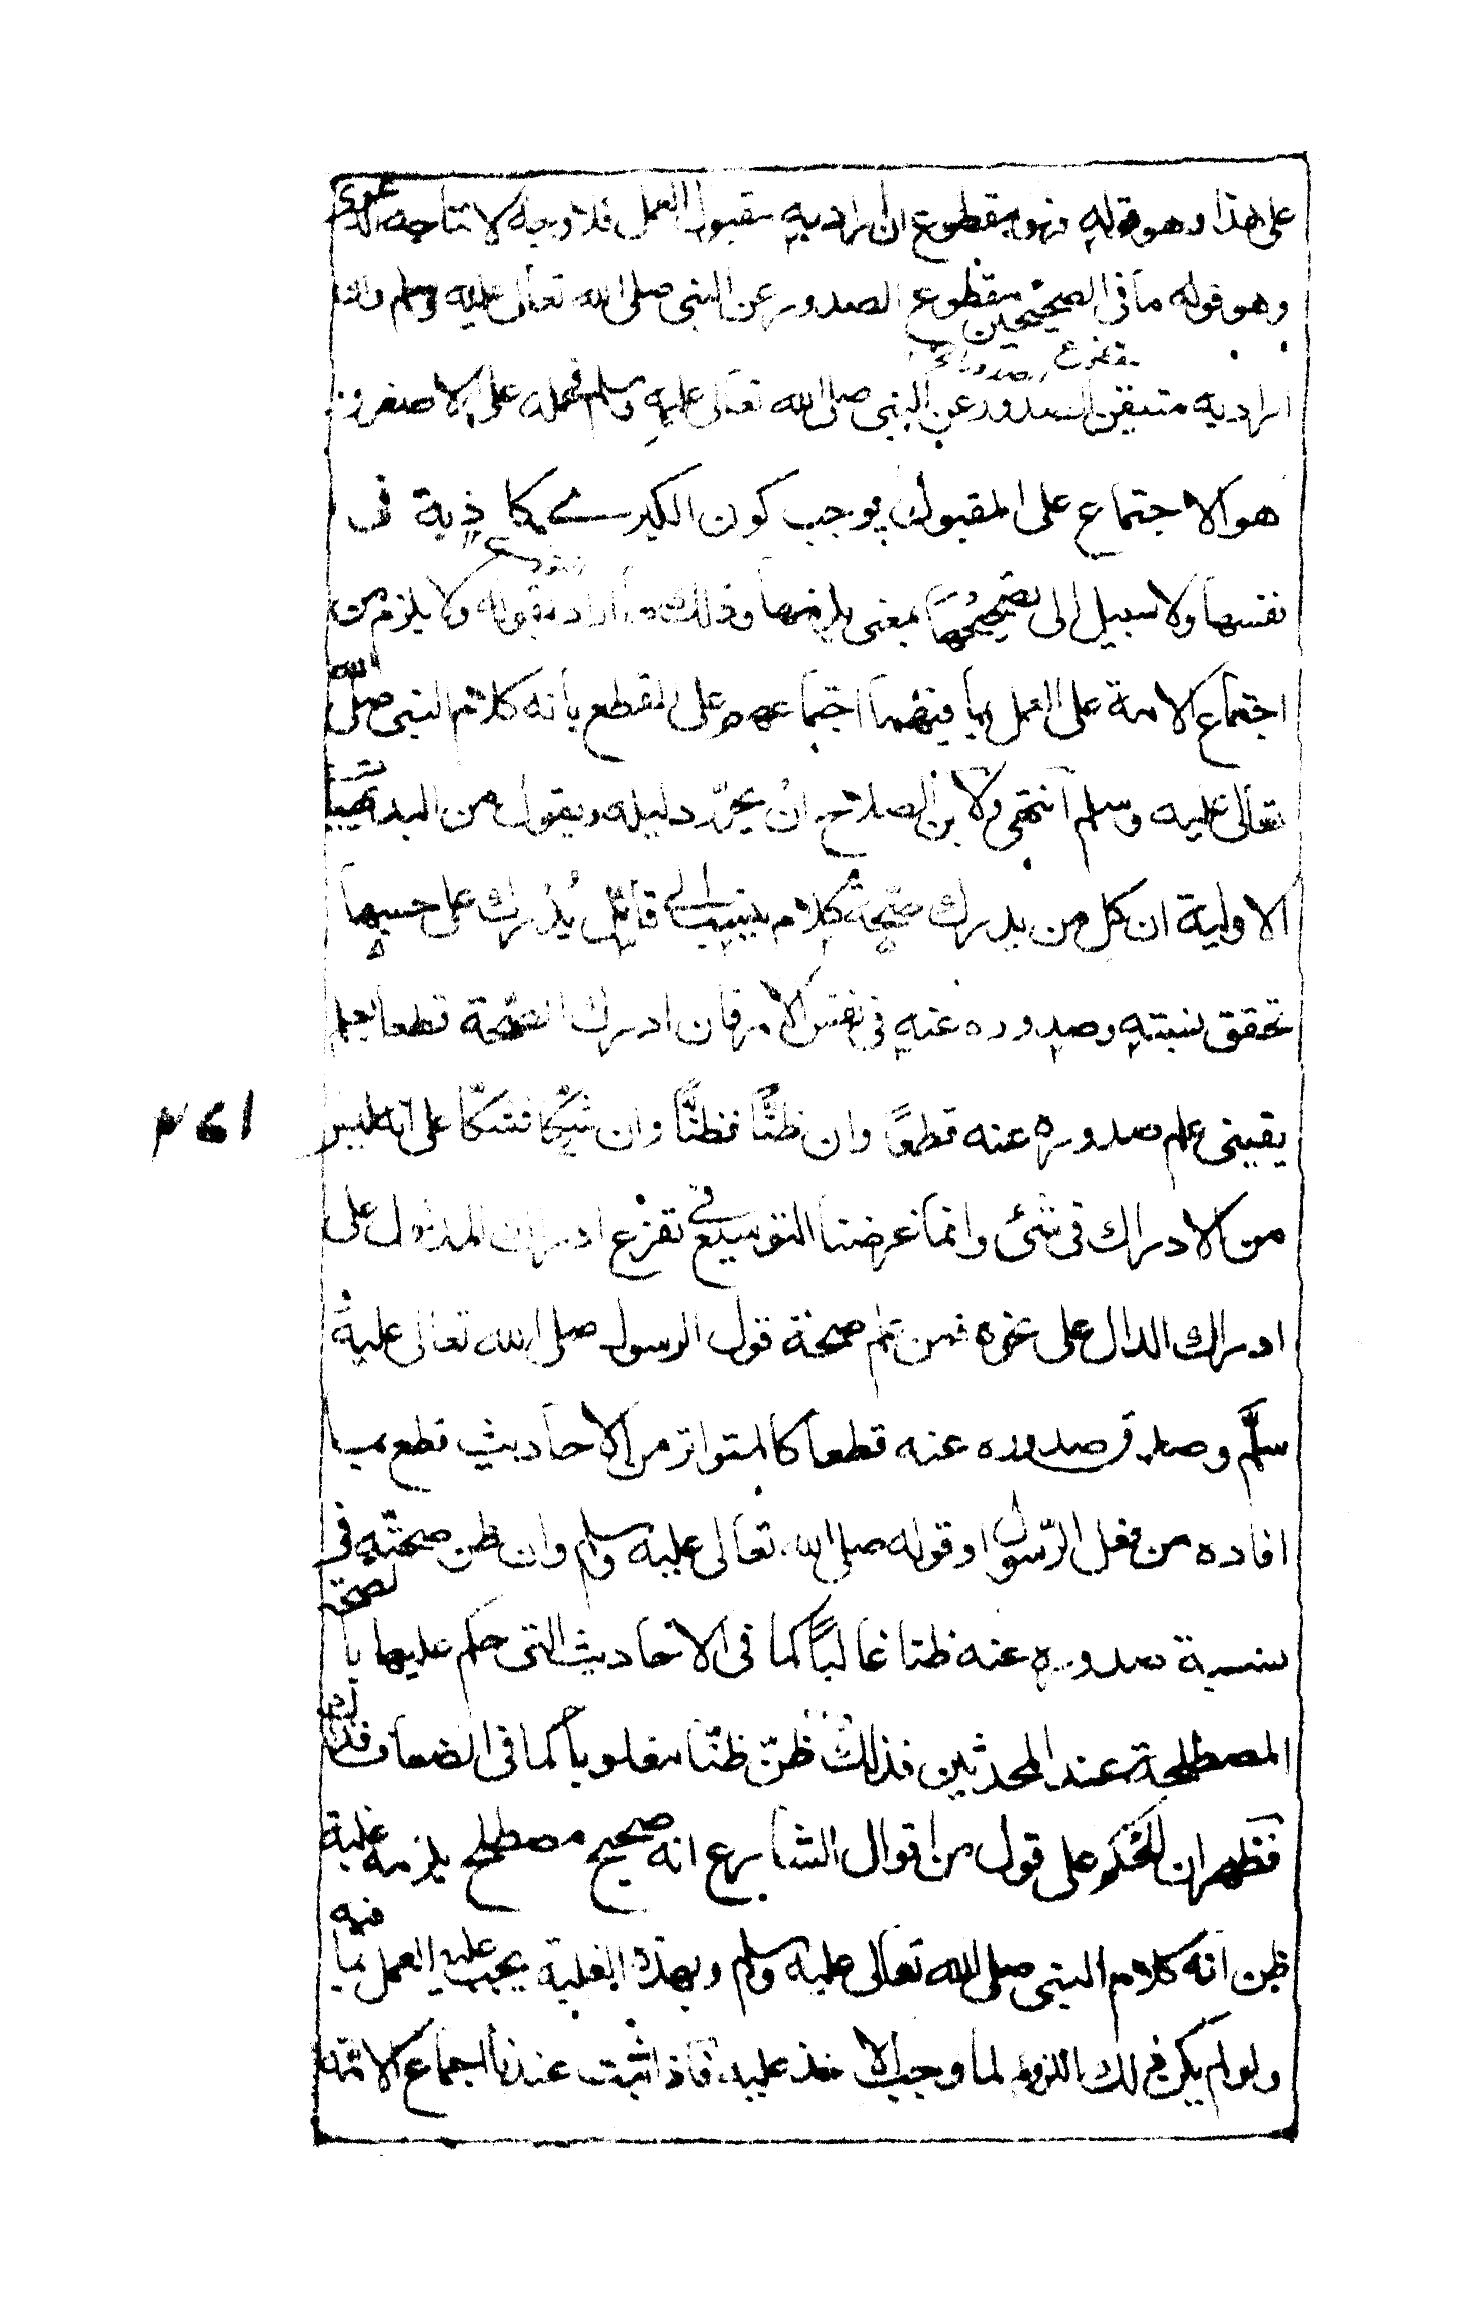 على هذا وهو قوله فهو مقطوع ان اراد به مقبول العمل فلا وجه لانتاجه
وهو قوله ما في الصحيحين مقطوع الصدور عن النبي صلى الله تعالى عليه وسلم وان
اراد به متيقن الصدور عن النبي صلى الله تعالى عليه وسلم فحمله على الاصغر
هو الاجتماع على المقبول يوجب كون الكبرے كاذبة في
نفسها ولا سبيل الى تصحيحها بمعنى وذلك ما اراد بقوله ولا يلزم من
اجتماع الامة على العمل بما فيهما اجتماعهم على القطع بانه كلام النبي صلى الله
تعالى عليه وسلم انتهى ولابن الصلاح ان يحرّر دليله ويقول من البديهيات
الاولية ان كل من يدرك صحّة كلام ينسب الى قائل يُدرك على حسبها
تحقق نسبته وصدوره عنه في نفس الامر فان ادرك الصّحة قطعا بعلم
يقيني علم صدوره عنه قطعًا وان ظنًّا فظنًّا وان شكّا فشكّا على انه ليس
من الادراك في شئ وانما غرضنا التوسيع في تفرع ادراك المدلول على
ادراك الدال على نحوه فمن علم صحة قول الرسول صلى الله تعالى عليه
سلّم وصدق صدوره عنه قطعا كالمتواتر من الاحاديث قطع بما
افاده من فعل الرّسول او قوله صلى الله تعالى عليه وسلم وان ظن صحتّه في
نسبة صدوره عنه ظنا غالبًا كما في الاحاديث التي حكم عليها بالصحة
المصطلحة عند المحدثين فذلك ظنّ ظنّا مغلوبا كما في الضعاف فذلك
فظهر ان الحكم على قول من اقوال الشارع انه صحيح مصطلح يلزمه غلبة
ظن انه كلام النبي صلى الله تعالى عليه وسلم وبهذه الغلبة يجب عليه العمل بما فيه
ولو لم يكن ذلك اللزوم لما وجب الاخذ عليه فاذا ثبت عندنا اجماع الامّة
١٤٦